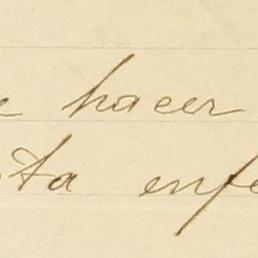 hacer
ta enfe